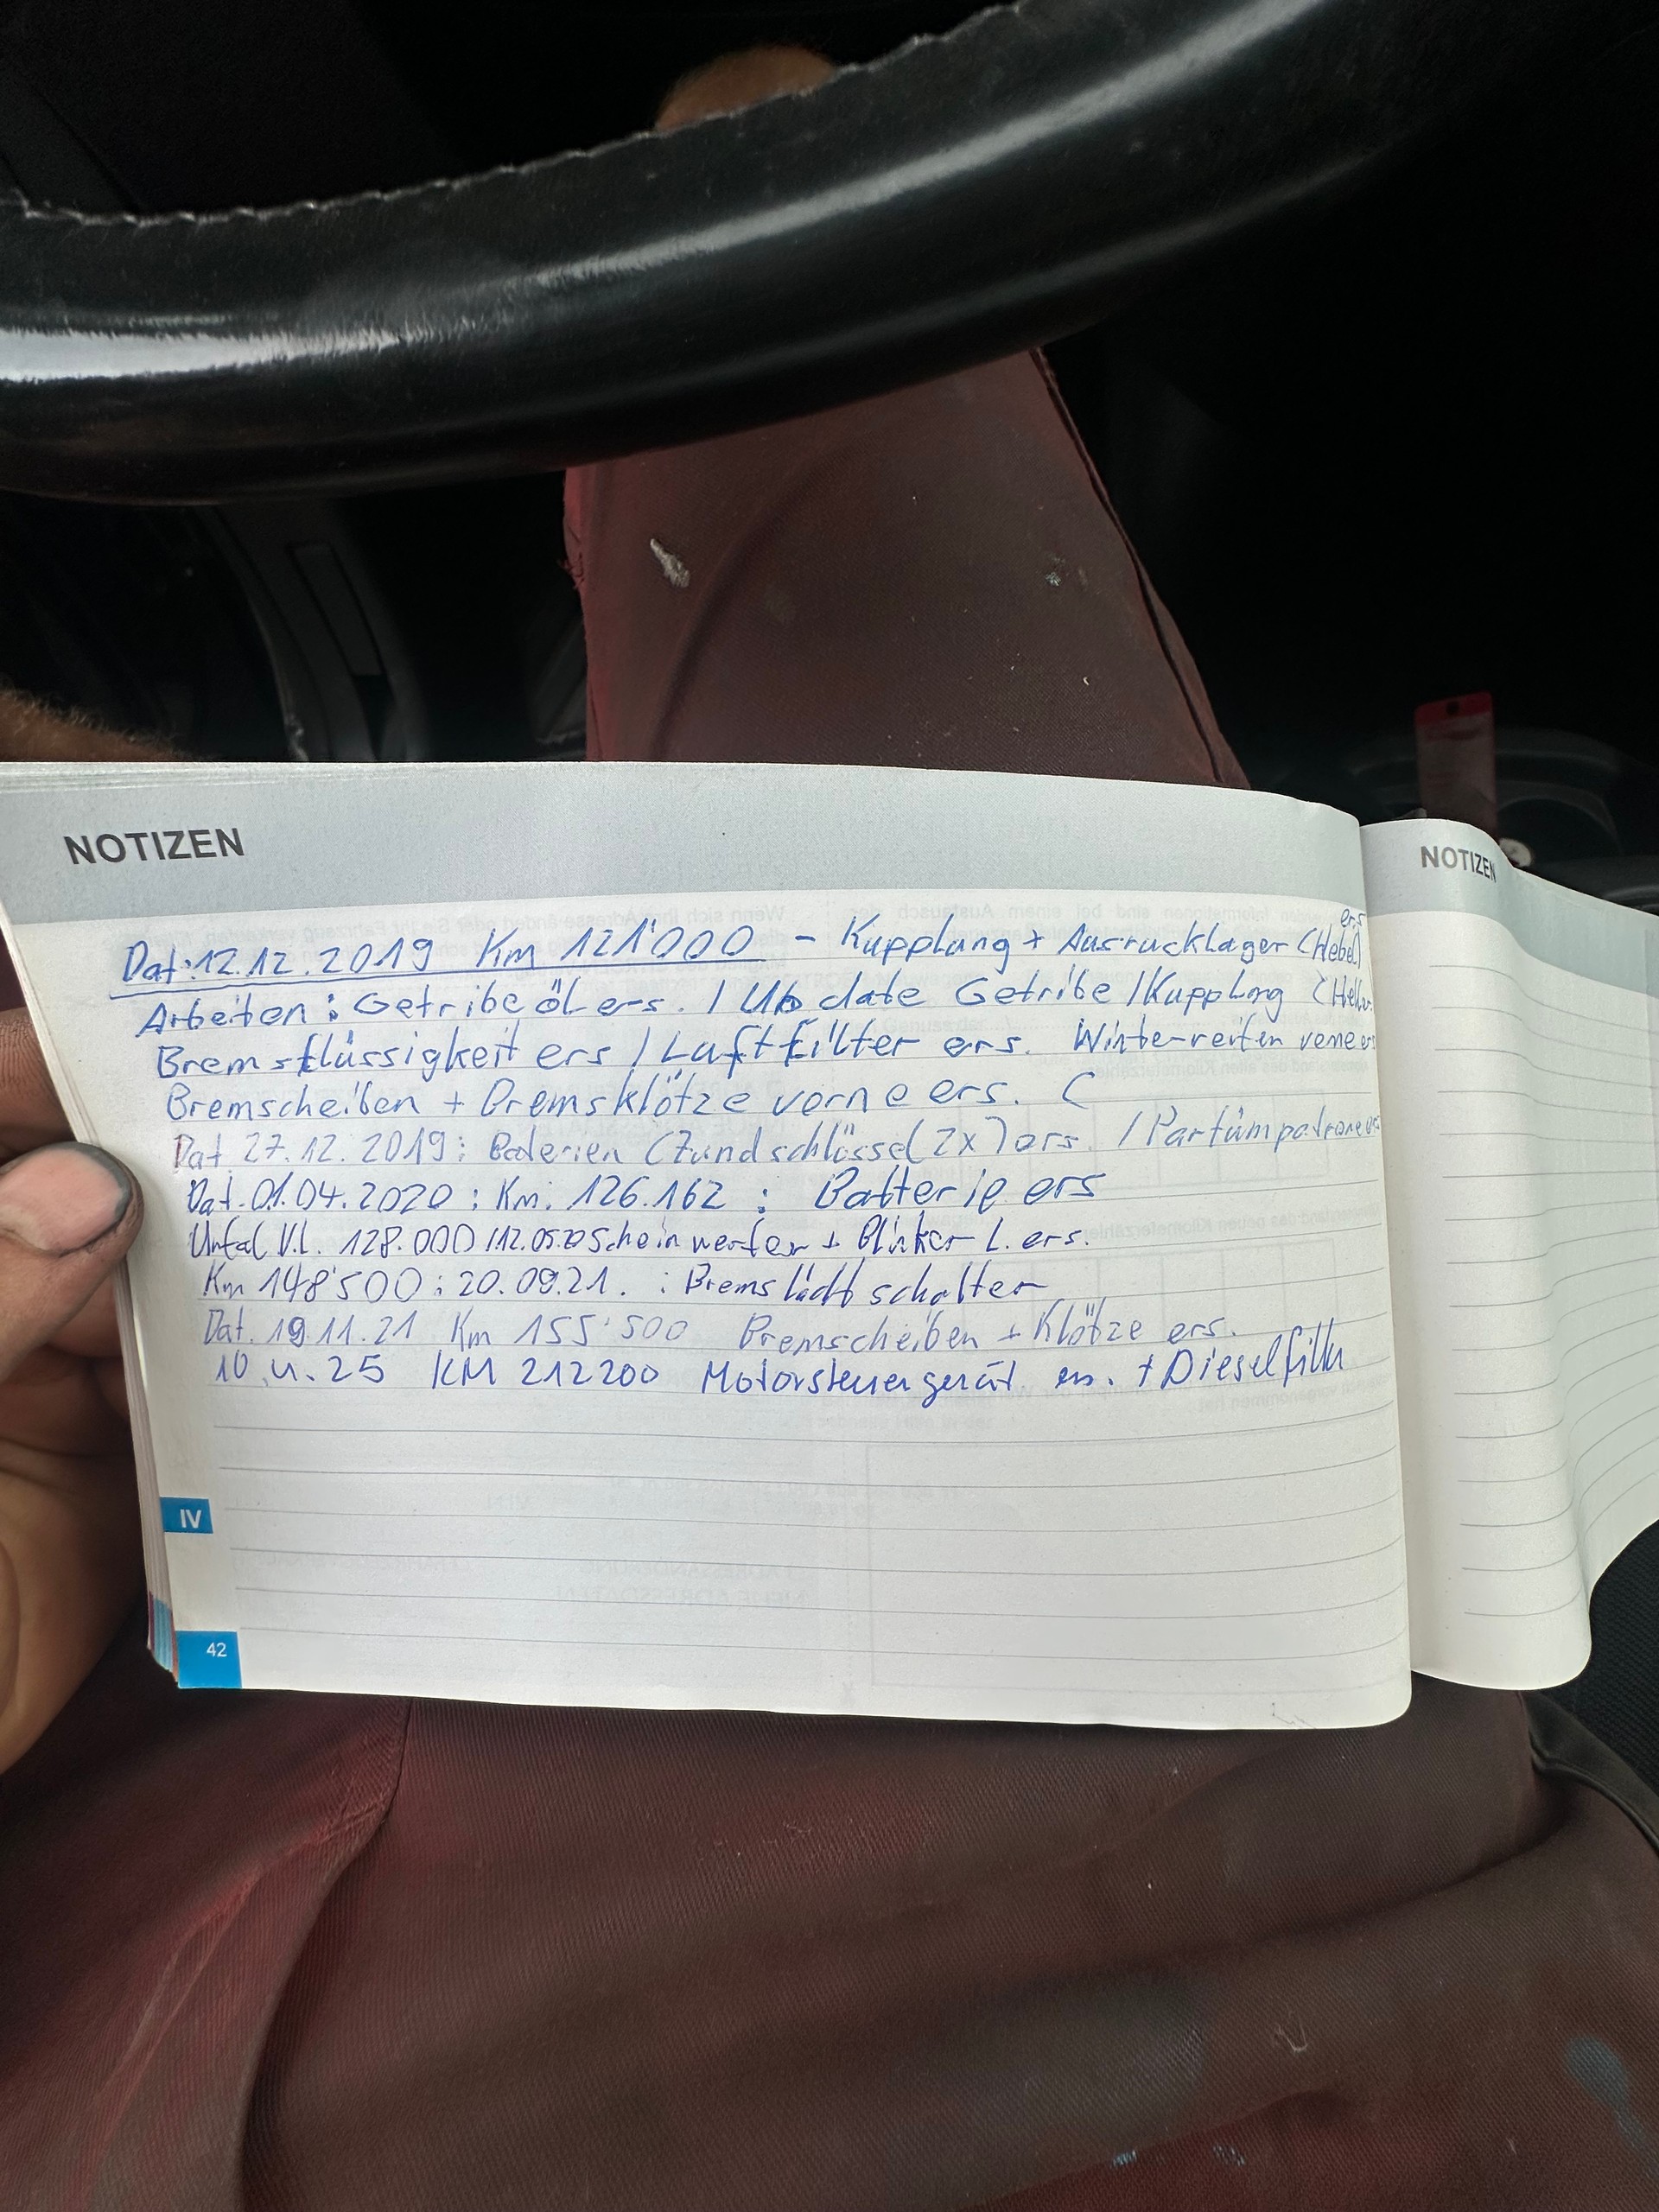 NOTIZEN
NOTIZEN
ers
Dat:12.12.2019 Km 121'000 - Kupplung + Ausrucklager (Hebel)
Arbeiten: Getribe öl ers. / Up date Getribe / Kupplng
Bremsflüssigkeit ers / Luftfilter ers. Winterreifen vorne ers
Bremscheiben + Bremsklötze vorne ers. (
Dat. 27.12.2019: Baterien (Zündschlüssel 2x) ers. / Parfümpatrone ers
Dat. 01.04.2020 : Km: 126.162 : Batterie ers
Unfal V.L. 128.000 / 12.05.20 Scheinwerfer + Blinker L. ers.
Km 148'500 : 20.09.21. : Bremslicht schalter
Dat. 19.11.21 Km 155'500 Bremscheiben + Klötze ers.
10.4.25 KM 212200 Motorsteuergerät ers. + Dieselfilter
IV
42